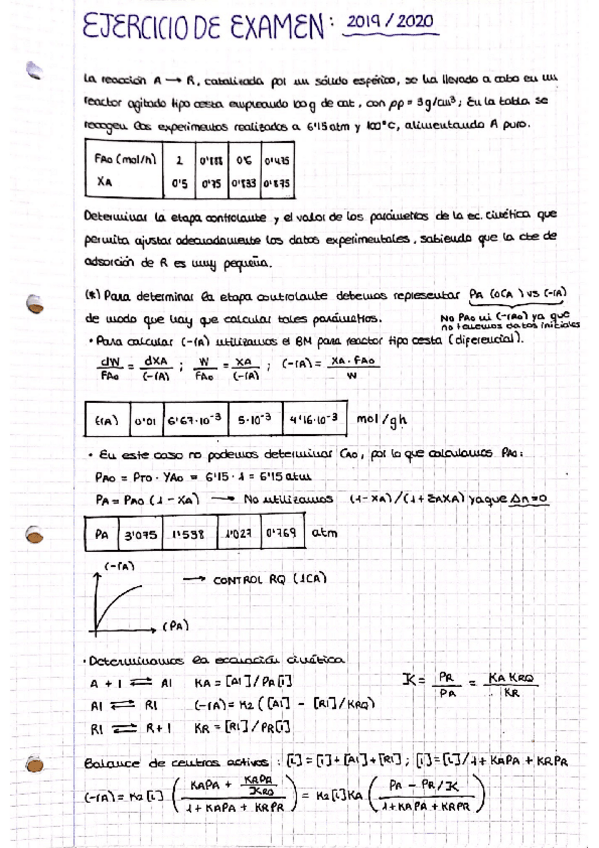 EJERCICIO DE EXAMEN: 2019/2020
La reacción A → R, catalizada por un sólido esférico, se ha llevado a cabo en un
reactor agitado tipo cesta empleando 100g de cat, con ρp = 3g/cm³; En la tabla se
recogen los experimentos realizados a 6'15atm y 100°C, alimentando A puro.
FAo (mol/h) 2 0'888 0'6 0'475
XA 0'5 0'75 0'833 0'875
Determinar la etapa controlante y el valor de los parámetros de la ec. cinética que
permita ajustar adecuadamente los datos experimentales, sabiendo que la cte de
adsorción de R es muy pequeña.
(*) Para determinar la etapa controlante debemos representar PA (o CA) vs (-rA)
de modo que hay que calcular tales parámetros. No PAo ni (-rAo) ya que
no tenemos datos iniciales
• Para calcular (-rA) utilizamos el BM para reactor tipo cesta (diferencial).
dW/FAo = dXA/(-rA) ; W/FAo = XA/(-rA) ; (-rA) = XA · FAo/W
(-rA) 0'01 6'67·10⁻³ 5·10⁻³ 4'16·10⁻³ mol/gh
• En este caso no podemos determinar CAo, por lo que calculamos PAo:
PAo = PTo · YAo = 6'15 · 1 = 6'15 atm
PA = PAo (1 - XA) → No utilizamos (1-XA)/(1+ΣAXA) ya que Δn=0
PA 3'075 1'538 1'027 0'769 atm
(-rA)
→ CONTROL RQ (1CA)
(PA)
• Determinamos la ecuación cinética
A + l ⇌ Al KA = [Al]/PA[l] K = PR/PA = KA KRQ/KR
Al ⇌ Rl (-rA) = K2 ([Al] - [Rl]/KRQ)
Rl ⇌ R + l KR = [Rl]/PR[l]
Balance de centros activos : [L] = [l]+[Al]+[Rl] ; [l] = [L]/1+KAPA + KRPR
(-rA) = K2[L] (KAPA + KRPR/KRQ / 1+KAPA + KRPR) = K2[L]KA (PA - PR/K / 1+KAPA+KRPR)